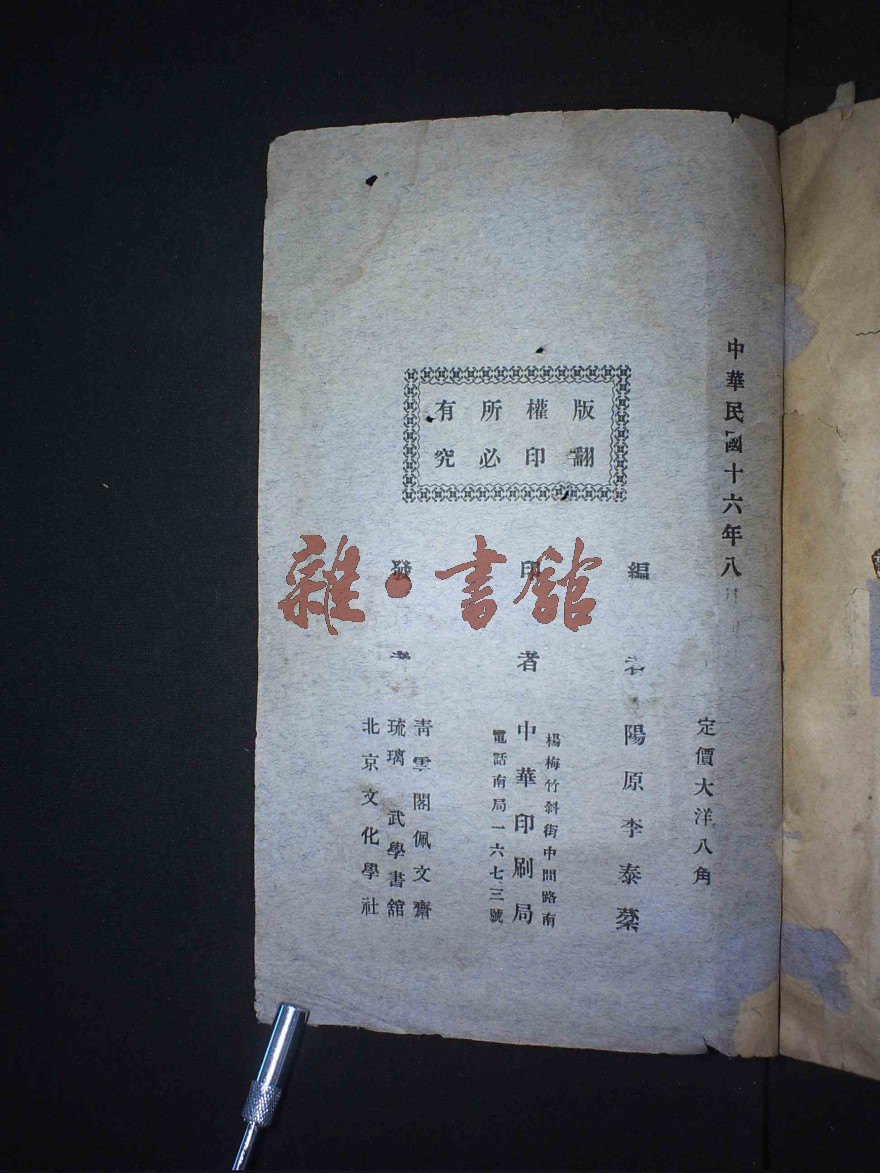 中華民國十六年八
定價大洋八角
版權所有
翻印必究
編 者 陽原李泰棻
楊梅竹斜街中間路南
印 者 中華印刷局
電話南局一六七三號
發 者
青雲閣佩文齋
琉璃 武學書館
北京文化學社
雜·書館